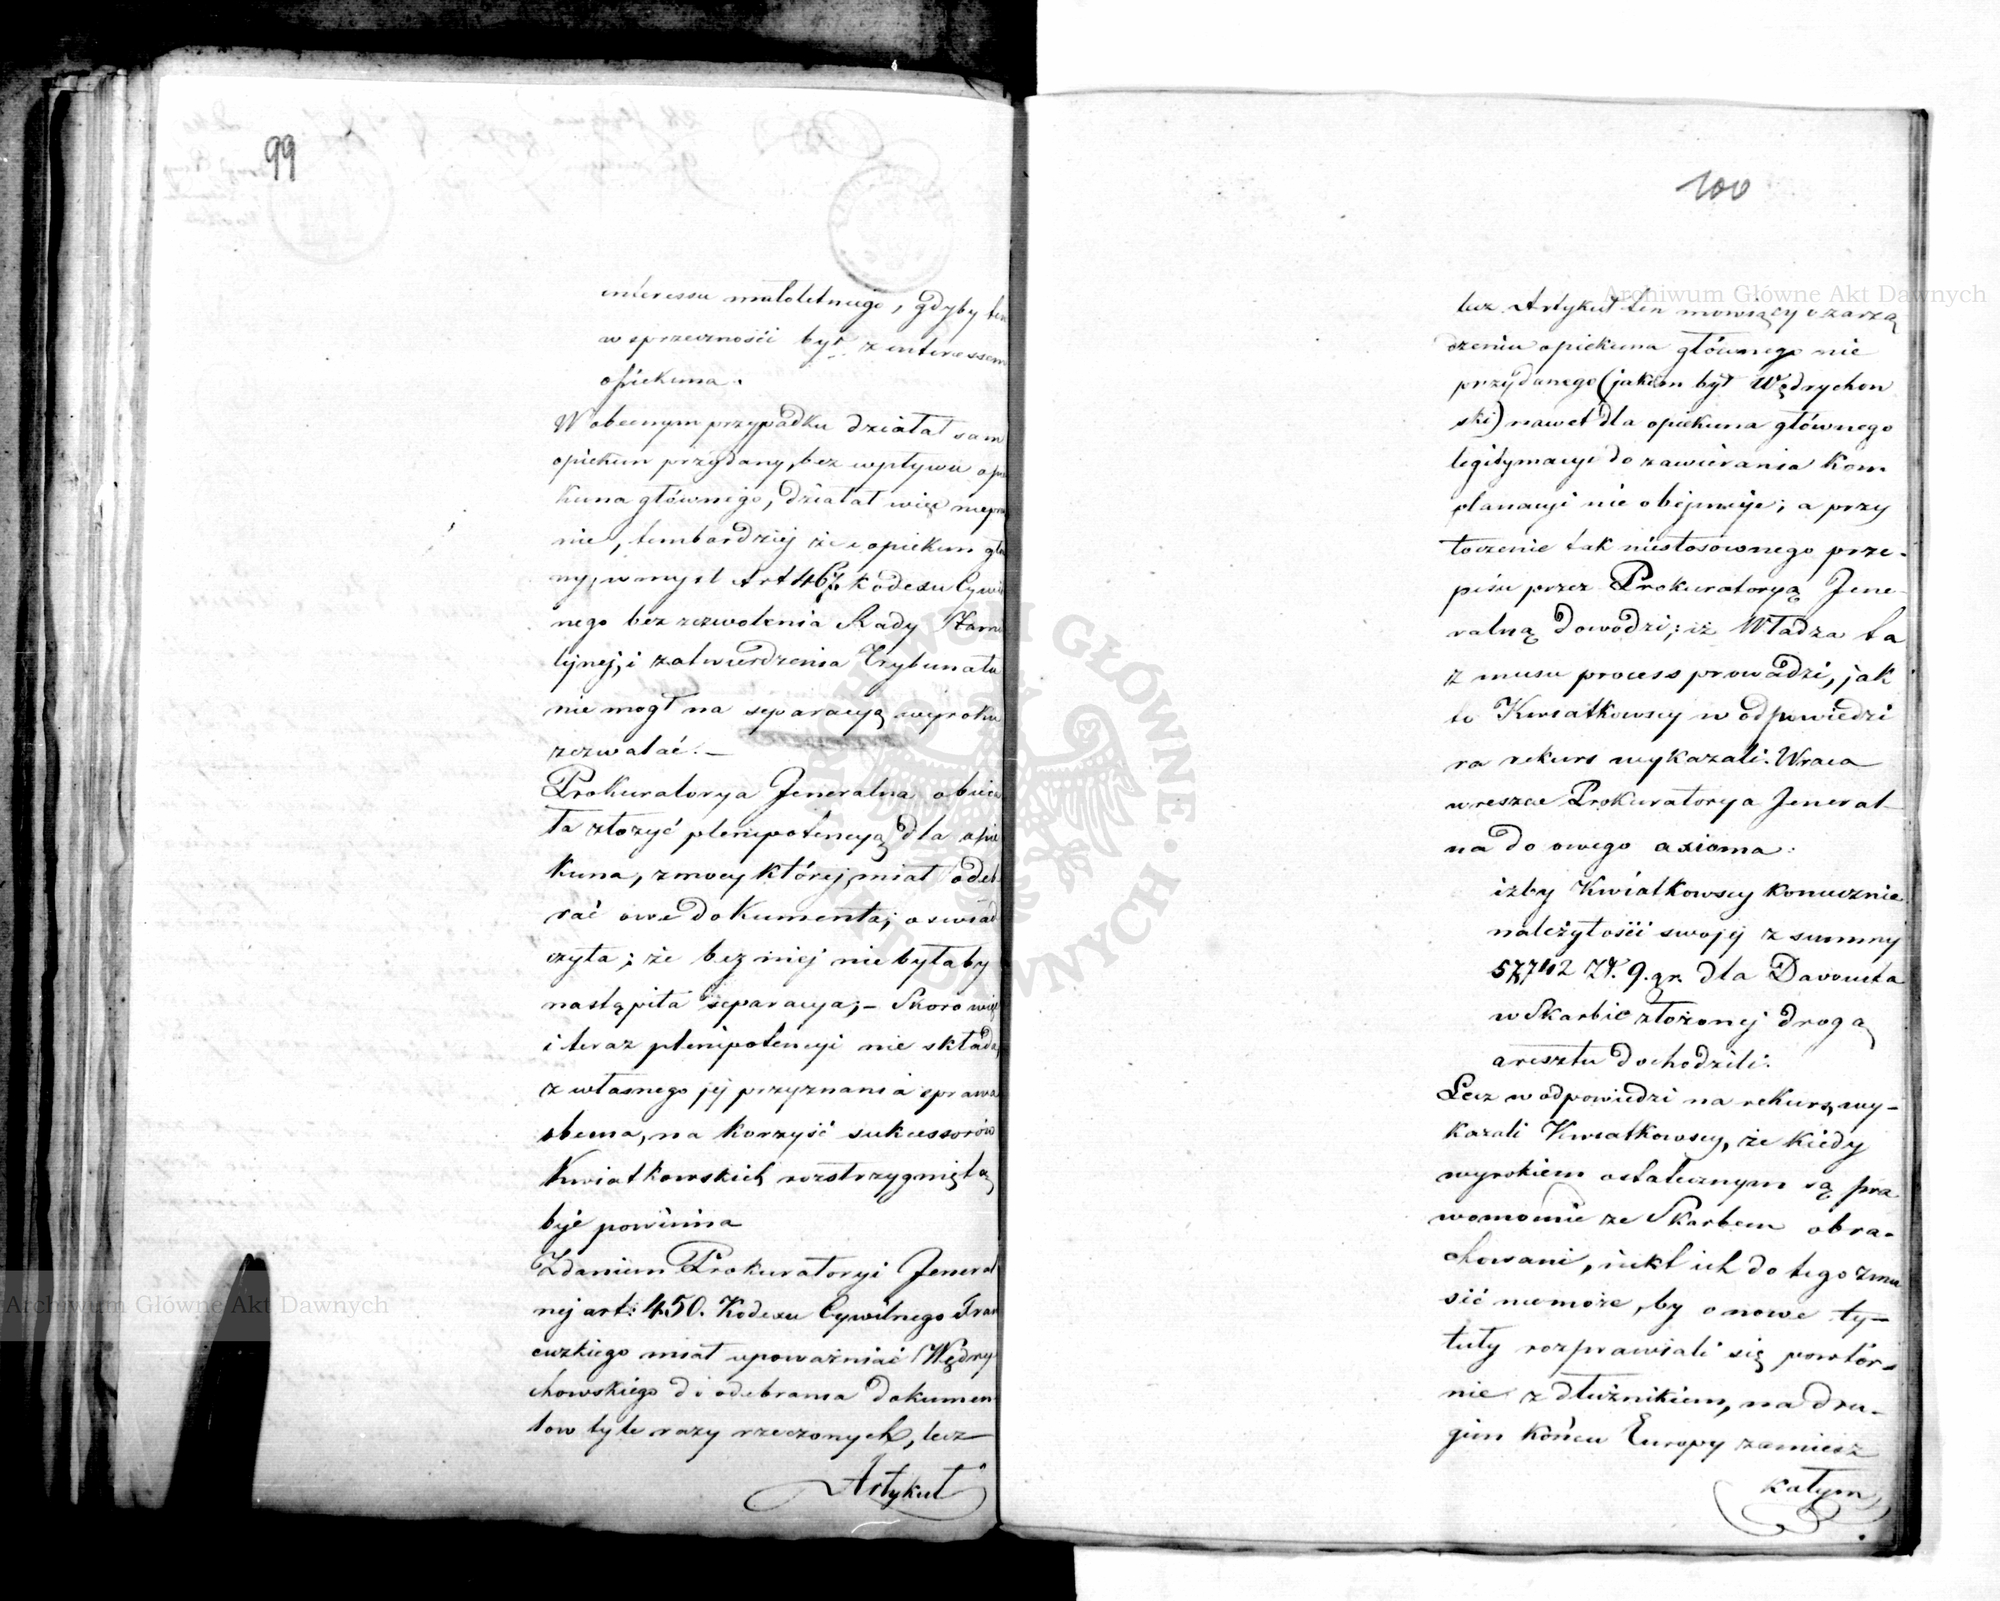 99
interessu małoletniego, gdyby ten
w sprzeczności był z interessem
opiekuna.
W obecnym przypadku działał sam
opiekun przydany, bez wpływu opie
kuna głównego, działał więc niepra
nie, tembardziej że i opiekun głó
ny, w myśl Art 467 Kodexu Cywil
nego bez zezwolenia Rady Fami
lijnej, i zatwierdzenia Trybunału
nie mógł na separacyą wyroku
zezwalać. —
Prokuratorya Jeneralna obieca
ła złożyć plenipotencyą dla opie
kuna, z mocy której, miał odeb
rać owe dokumenta; oswiad
czyła; że bez niej nie byłaby
nastąpiła separacya; — Skoro więc
i teraz plenipotencyi nie składa,
z własnego jej przyznania sprawa
obecna, na korzyść sukcessorów
Kwiatkowskich rozstrzygniętą
być powinna
Zdaniem Prokuratoryi Jeneral
nej art: 450. Kodexu Cywilnego Fran
cuzkiego miał upoważniać Wędry
chowskiego do odebrania dokumen
tow tyle razy rzeczonych, lecz
Artykuł
100
lecz Artykuł ten mówiący o zarzą
dzeniu opiekuna głównego nie
przydanego (jakiem był Wędrychow
ski) nawet dla opiekuna głównego
legitymacyi do zawierania Kom
planacyi nie obejmuje; a przy
toczenie tak niestosownego prze-
pisu przez Prokuratoryą Jene-
ralną dowodzi; iż Władza ta
z musu process prowadzi, jak
to Kwiatkowscy w odpowiedzi
na rekurs wykazali. Wraca
wreszcie Prokuratorya Jeneral-
na do owego axioma:
iżby Kwiatkowscy koniecznie
należytości swojej z summy
57742 Zł. 9. gr. dla Davousta
w Skarbie złożonej drogą
aresztu dochodzili.
Lecz w odpowiedzi na rekurs, wy-
kazali Kwiatkowscy, że kiedy
wyrokiem ostatecznym są pra
womocnie ze Skarbem obra-
chowani, nikt ich do tego zmu
sić niemoże, by o nowe ty-
tuły rozprawiali się powtór-
nie z dłużnikiem, na dru-
gim końcu Europy zamiesz
kałym,
Archiwum Główne Akt Dawnych
Archiwum Główne Akt Dawnych
ARCHIWUM GŁÓWNE AKT DAWNYCH